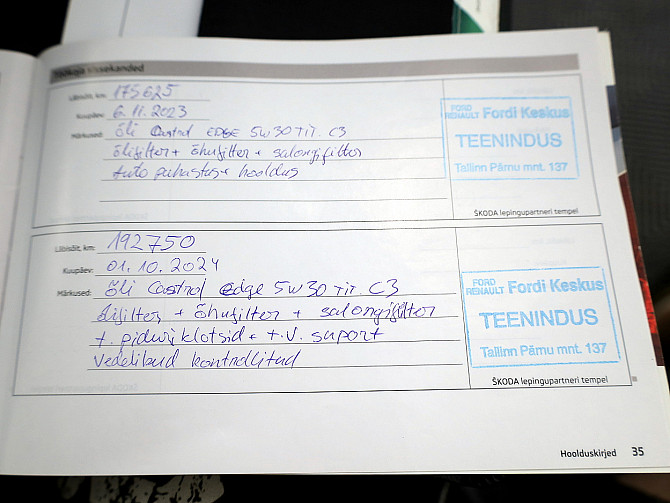 Töökoja sissekanded
Läbisõit, km: 175625
Kuupäev: 6.11.2023
Märkused: Õli Castrol EDGE 5W30 TIT. C3
Õlifilter + Õhufilter + salongifilter
Auto puhastus + hooldus
FORD RENAULT Fordi Keskus
TEENINDUS
Tallinn Pärnu mnt. 137
ŠKODA lepingupartneri tempel
Läbisõit, km: 192750
Kuupäev: 01.10.2024
Märkused: Õli Castrol edge 5W30 TIT. C3
Õlifilter + Õhufilter + salongifilter
t. piduriklotsid + t.v. suport
Vedelikud kontrollitud
FORD RENAULT Fordi Keskus
TEENINDUS
Tallinn Pärnu mnt. 137
ŠKODA lepingupartneri tempel
Hoolduskirjed 35